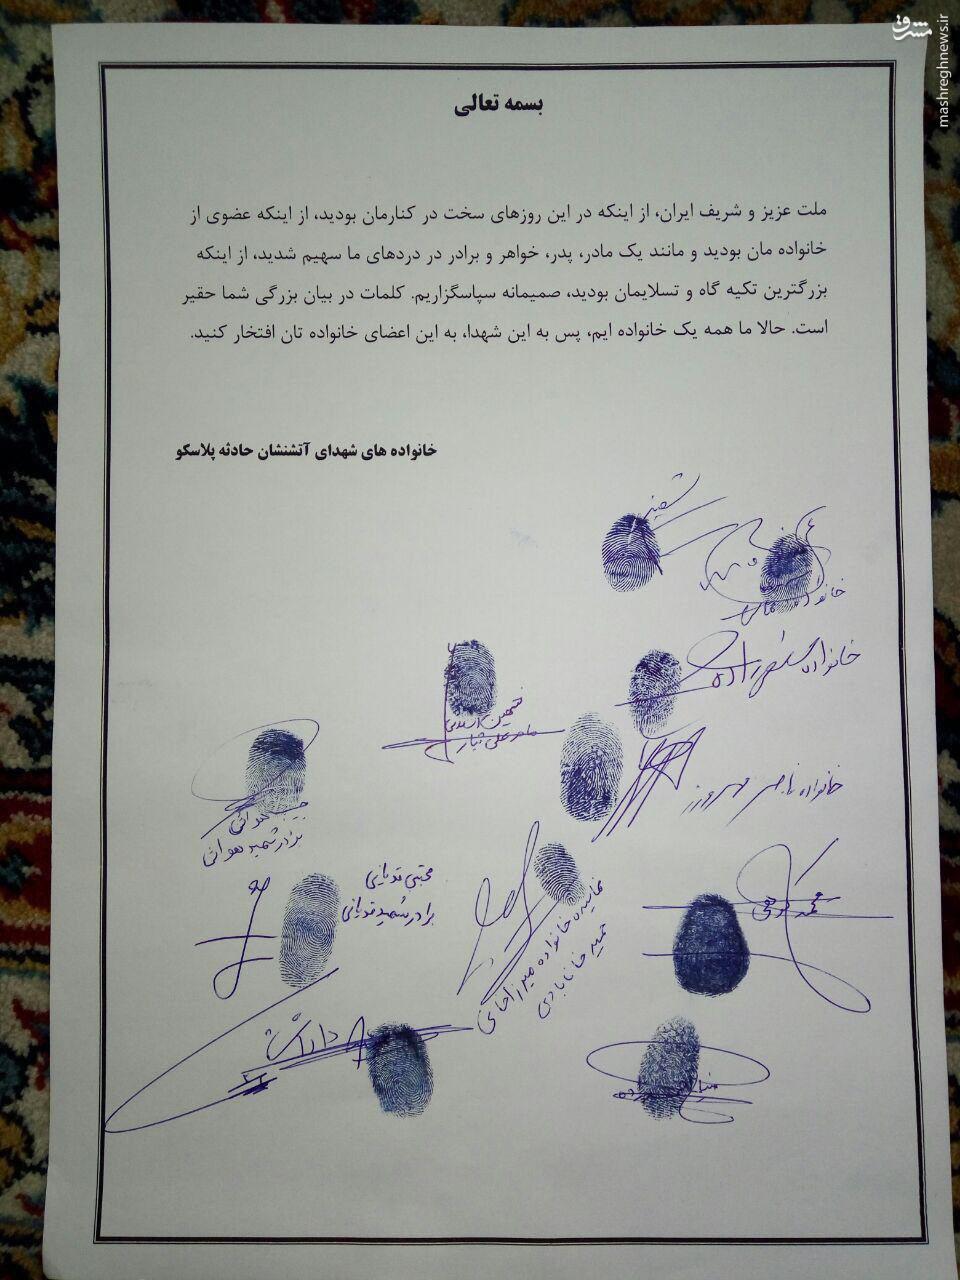 مشرق
mashreghnews.ir
بسمه تعالی
ملت عزیز و شریف ایران، از اینکه در این روزهای سخت در کنارمان بودید، از اینکه عضوی از
خانواده مان بودید و مانند یک مادر، پدر، خواهر و برادر در دردهای ما سهیم شدید، از اینکه
بزرگترین تکیه گاه و تسلایمان بودید، صمیمانه سپاسگزاریم. کلمات در بیان بزرگی شما حقیر
است. حالا ما همه یک خانواده ایم، پس به این شهدا، به این اعضای خانواده تان افتخار کنید.
خانواده های شهدای آتشنشان حادثه پلاسکو
خانواده
خانواده
خانواده ناصر مهرورز
برادر شهید هوائی
مجتبی قدیانی
برادر شهید قدیانی
نماینده خانواده میرزاخانی
حمید خانابادی